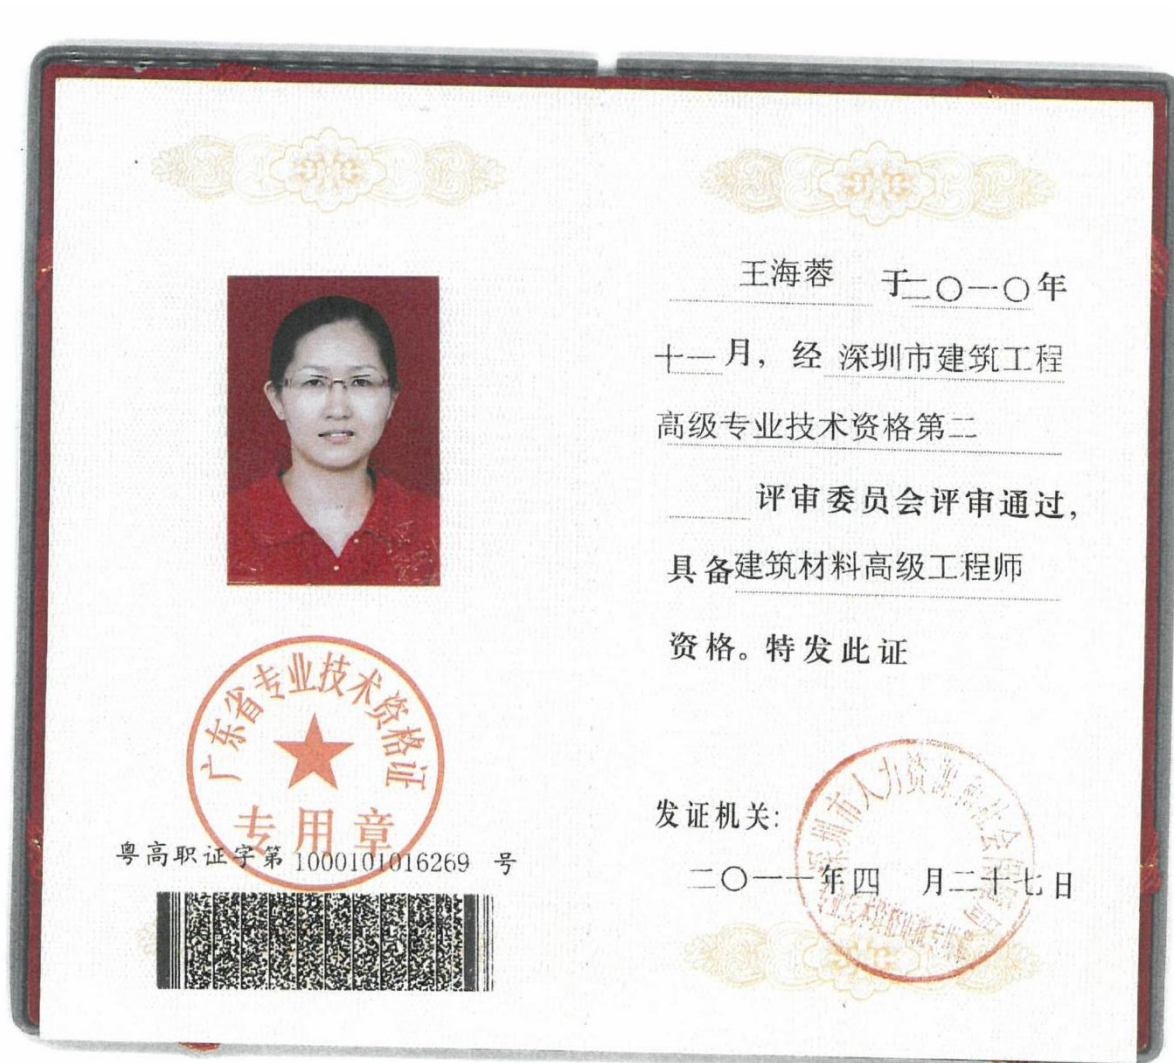 广东省专业技术资格证
专用章
粤高职证字第 1000101016269 号
王海蓉 于二〇一〇年
十一月，经 深圳市建筑工程
高级专业技术资格第二
评审委员会评审通过，
具备建筑材料高级工程师
资格。特发此证
深圳市人力资源和社会保障局
发证机关：
二〇一一年四 月二十七日